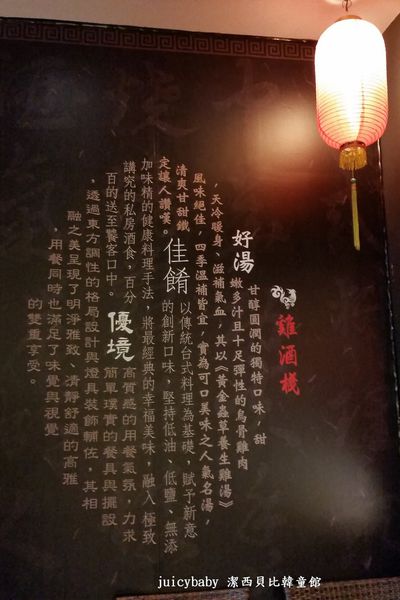 雞酒棧
好湯
甘醇圓潤的獨特口味,甜
嫩多汁且十足彈性的烏骨雞肉
,天冷暖身、滋補氣血,其以《黃金蟲草養生雞湯》
風味絕佳,四季溫補皆宜,實為可口美味之人氣名湯,
清爽甘甜鐵
定讓人讚嘆。
佳餚
以傳統台式料理為基礎,賦予新意
的創新口味,堅持低油、低鹽、無添
加味精的健康料理手法,將最經典的幸福美味,融入極致
講究的私房酒食,百分
百的送至饕客口中。
優境
高質感的用餐氣氛,力求
簡單璞實的餐具與擺設
,透過東方調性的格局設計與燈具裝飾輔佐,其相
融之美呈現了明淨雅致、清靜舒適的高雅
,用餐同時也滿足了味覺與視覺
的雙重享受。
juicybaby 潔西貝比韓童館